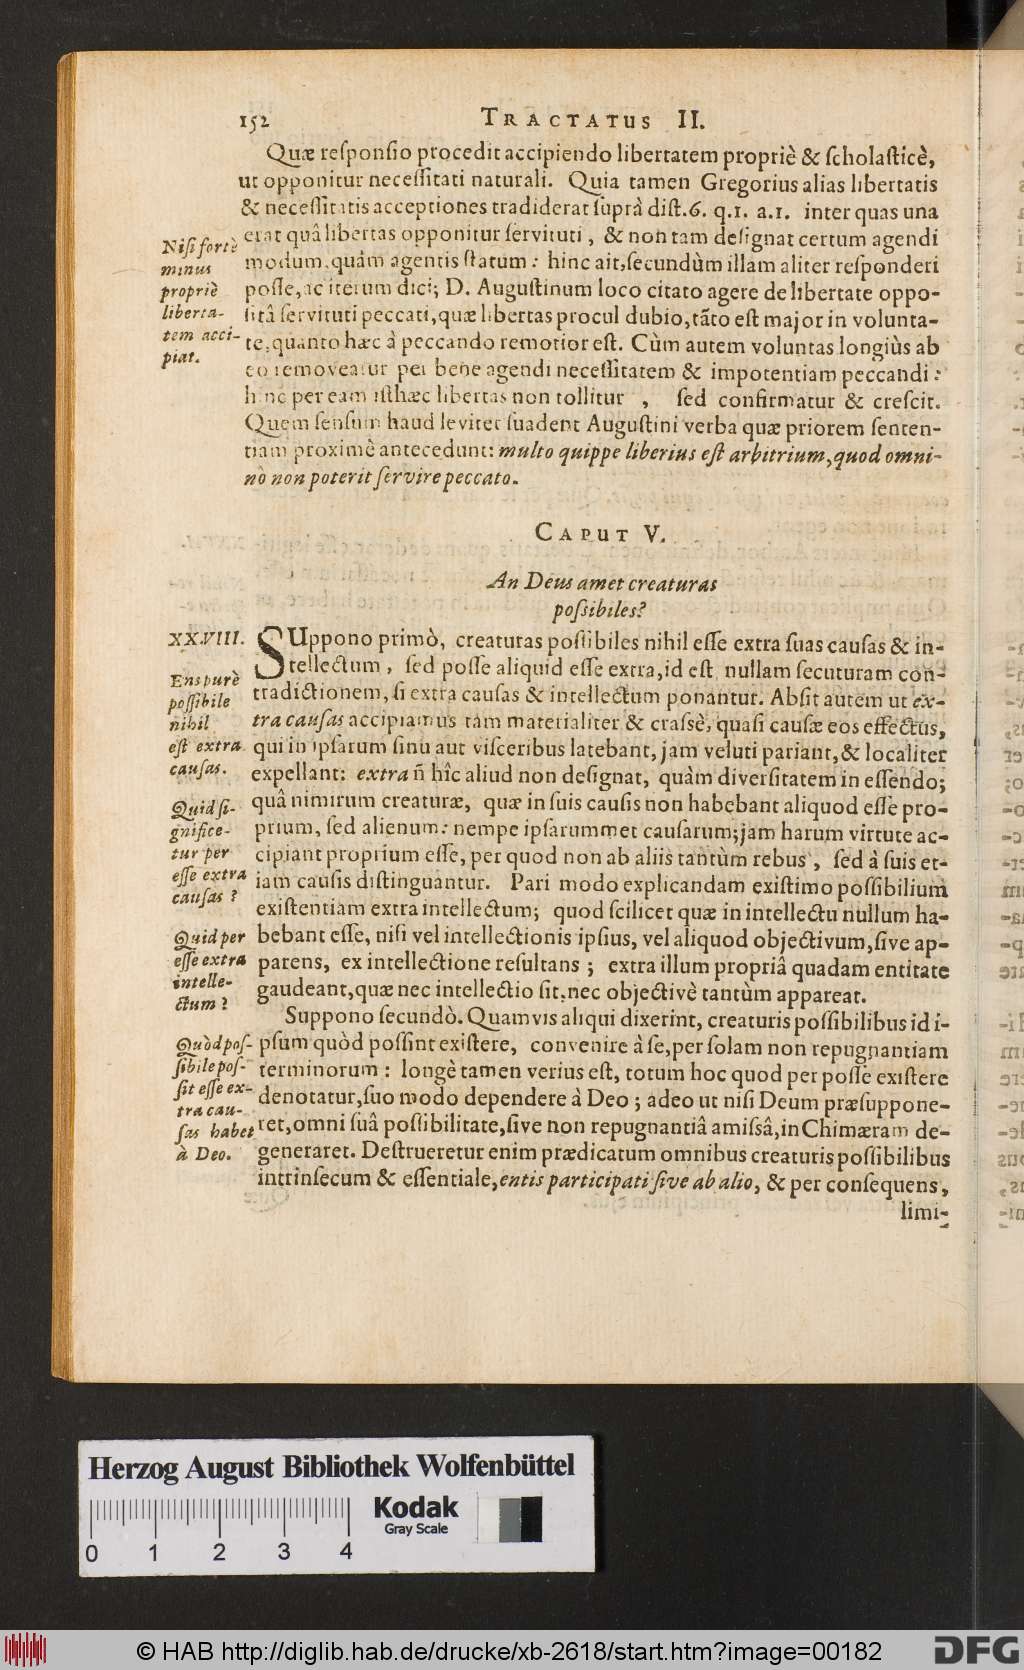 152 TRACTATUS II.
Quæ responsio procedit accipiendo libertatem propriè & scholasticè,
ut opponitur necessitati naturali. Quia tamen Gregorius alias libertatis
& necessitatis acceptiones tradiderat suprà dist. 6. q. 1. a. 1. inter quas una
erat quâ libertas opponitur servituti, & non tam designat certum agendi
modum, quàm agentis statum: hinc ait, secundùm illam aliter responderi
posse, ac iterum dici; D. Augustinum loco citato agere de libertate oppo-
sitâ servituti peccati, quæ libertas procul dubio, tãto est major in volunta-
te, quanto hæc à peccando remotior est. Cùm autem voluntas longiùs ab
eo removeatur per bene agendi necessitatem & impotentiam peccandi:
hinc per eam isthæc libertas non tollitur, sed confirmatur & crescit.
Quem sensum haud leviter suadent Augustini verba quæ priorem senten-
tiam proximè antecedunt: multo quippe liberius est arbitrium, quod omni-
nò non poterit servire peccato.
Nisi fortè
minus
propriè
liberta-
tem acci-
piat.
CAPUT V.
An Deus amet creaturas
possibiles?
XXVIII.
SUppono primò, creaturas possibiles nihil esse extra suas causas & in-
tellectum, sed posse aliquid esse extra, id est nullam secuturam con-
tradictionem, si extra causas & intellectum ponantur. Absit autem ut ex-
tra causas accipiamus tàm materialiter & crassè, quasi causæ eos effectus,
qui in ipsarum sinu aut visceribus latebant, jam veluti pariant, & localiter
expellant: extra ñ hîc aliud non designat, quàm diversitatem in essendo;
quâ nimirum creaturæ, quæ in suis causis non habebant aliquod esse pro-
prium, sed alienum: nempe ipsarummet causarum; jam harum virtute ac-
cipiant proprium esse, per quod non ab aliis tantùm rebus, sed à suis et-
iam causis distinguantur. Pari modo explicandam existimo possibilium
existentiam extra intellectum; quod scilicet quæ in intellectu nullum ha-
bebant esse, nisi vel intellectionis ipsius, vel aliquod objectivum, sive ap-
parens, ex intellectione resultans; extra illum propriâ quadam entitate
gaudeant, quæ nec intellectio sit, nec objectivè tantùm appareat.
Ens purè
possibile
nihil
est extra
causas.
Quid si-
gnifice-
tur per
esse extra
causas?
Quid per
esse extra
intelle-
ctum?
Suppono secundò. Quamvis aliqui dixerint, creaturis possibilibus id i-
psum quòd possint existere, convenire à se, per solam non repugnantiam
terminorum: longè tamen verius est, totum hoc quod per posse existere
denotatur, suo modo dependere à Deo; adeo ut nisi Deum præsuppone-
ret, omni suâ possibilitate, sive non repugnantiâ amissâ, in Chimæram de-
generaret. Destrueretur enim prædicatum omnibus creaturis possibilibus
intrinsecum & essentiale, entis participati sive ab alio, & per consequens,
limi-
Quòd pos-
sibile pos-
sit esse ex-
tra cau-
sas habet
à Deo.
Herzog August Bibliothek Wolfenbüttel
Kodak
Gray Scale
0 1 2 3 4
© HAB http://diglib.hab.de/drucke/xb-2618/start.htm?image=00182
DFG